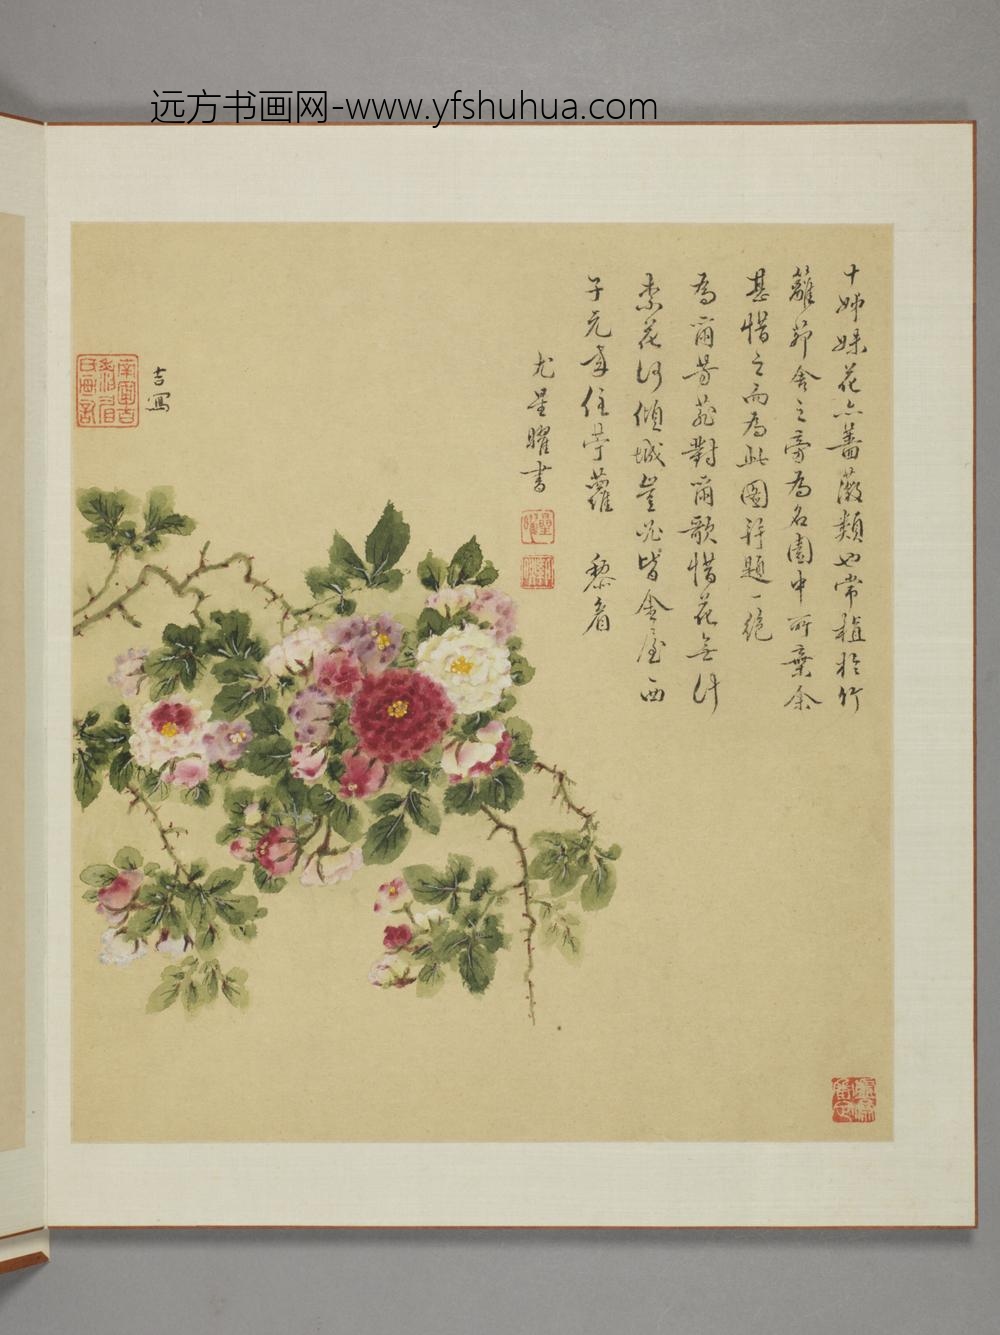 远方书画网-www.yfshuhua.com
十姊妹花亦薔薇類也常植於竹
籬茆舍之旁為名園中所棄余
甚惜之而為此圖并題一絕
為爾芳菲對爾歌惜花無計
花何傾城豈必皆金屋西
子元來住苧蘿
尤星曜書
吉寫